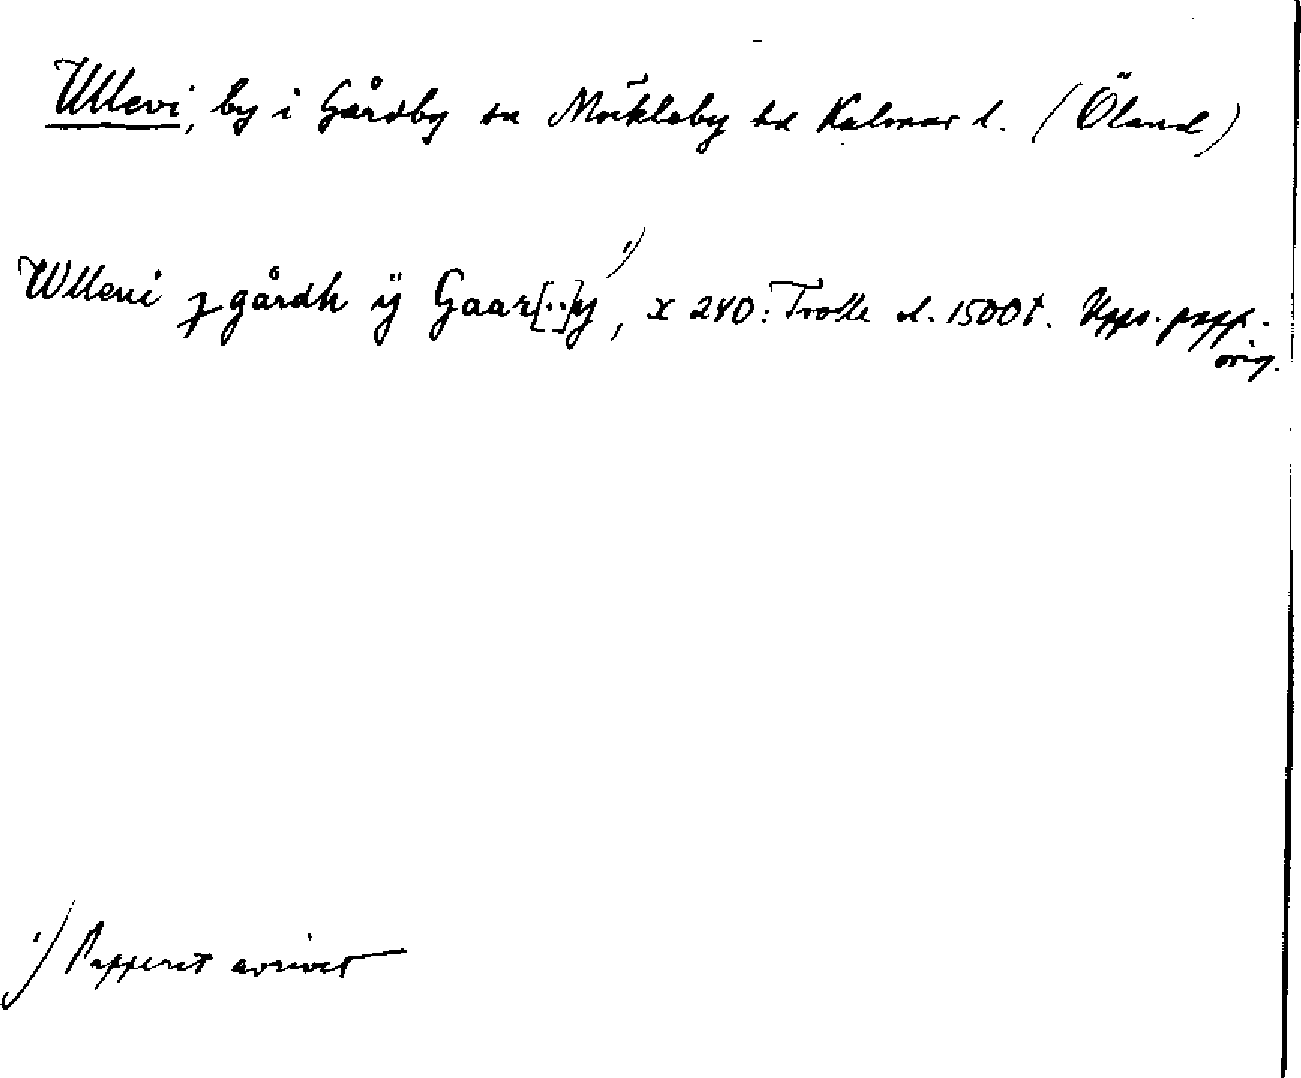 Ullevi, by i Gårdby sn Möckleby hd Kalmar l. (Öland)
Wlleui j gårdh ij Gaar[..]y ¹), x 240: Trolle d. 1500t. Upps. papp.
orig.
¹) Papperet avrivet